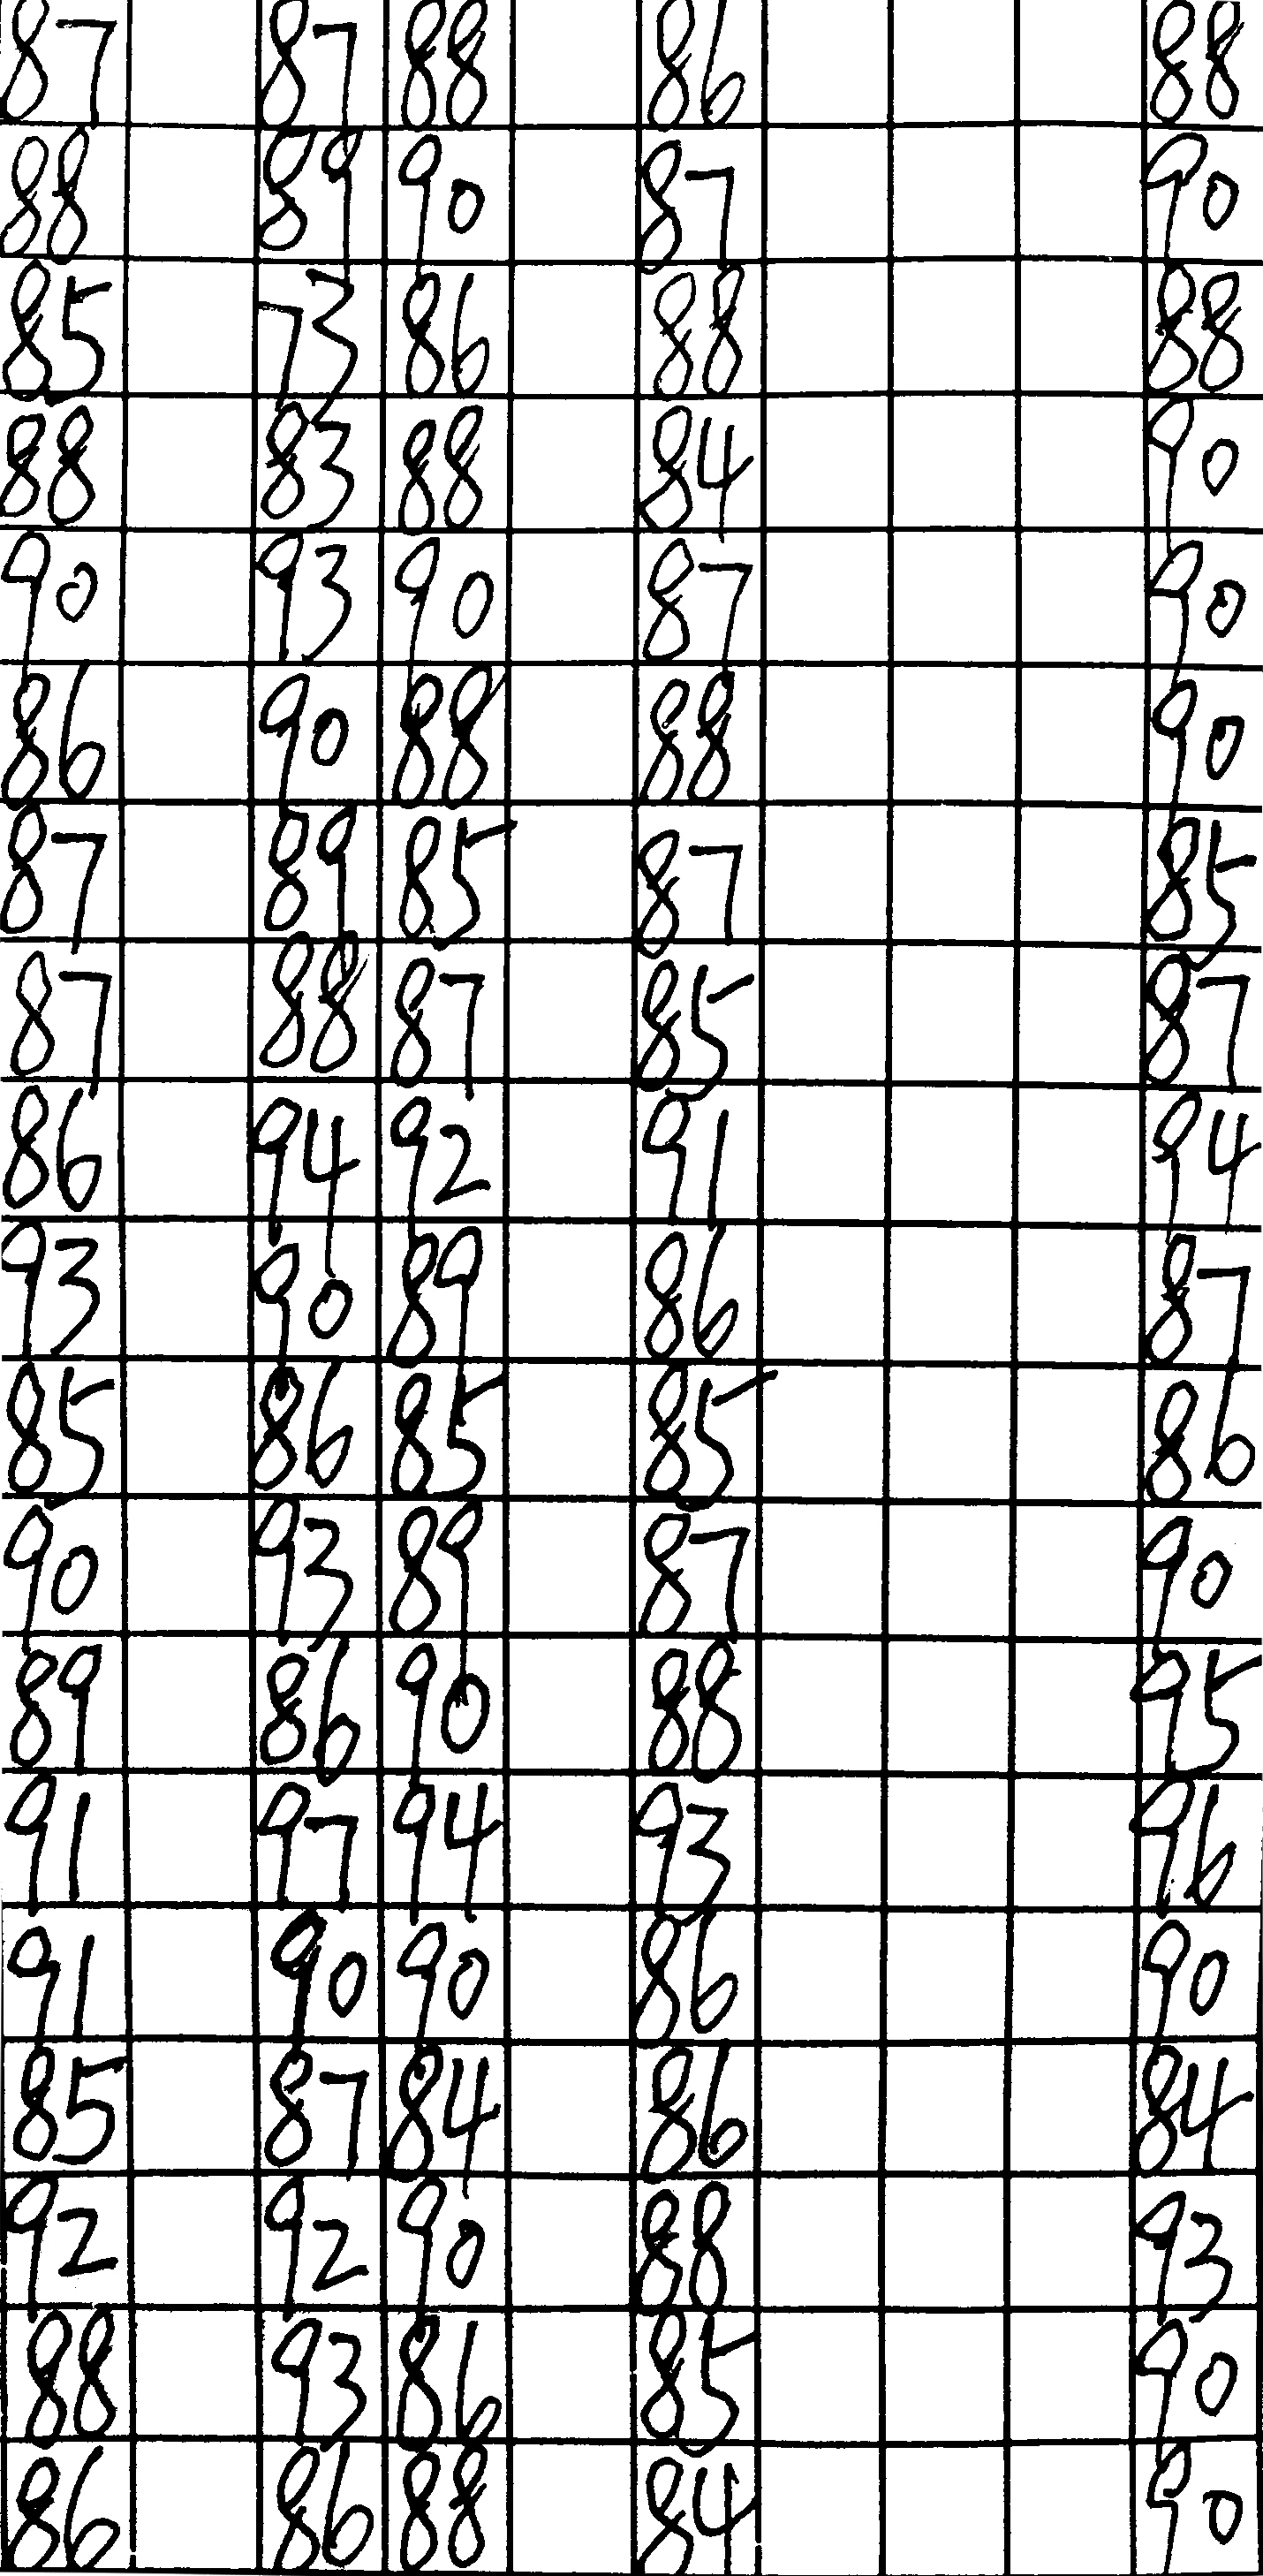 87 87 88 86 88
88 89 90 87 90
85 73 86 88 88
88 83 88 84 90
90 93 90 87 90
86 90 88 88 90
87 89 85 87 85
87 88 87 85 87
86 94 92 91 94
93 90 89 86 87
85 86 85 85 86
90 93 89 87 90
89 86 90 88 95
91 97 94 93 96
91 90 90 86 90
85 87 84 86 84
92 92 90 88 93
88 93 86 85 90
86 86 88 84 90